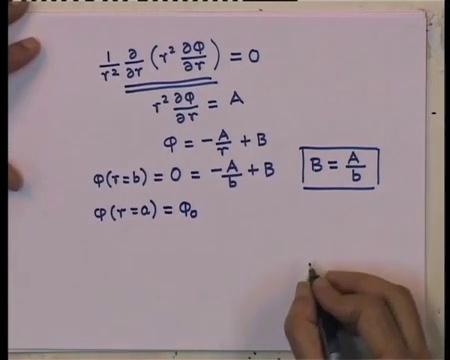 1/r² ∂/∂r (r² ∂φ/∂r) = 0
r² ∂φ/∂r = A
φ = -A/r + B
φ(r=b) = 0 = -A/b + B
B = A/b
φ(r=a) = φ₀